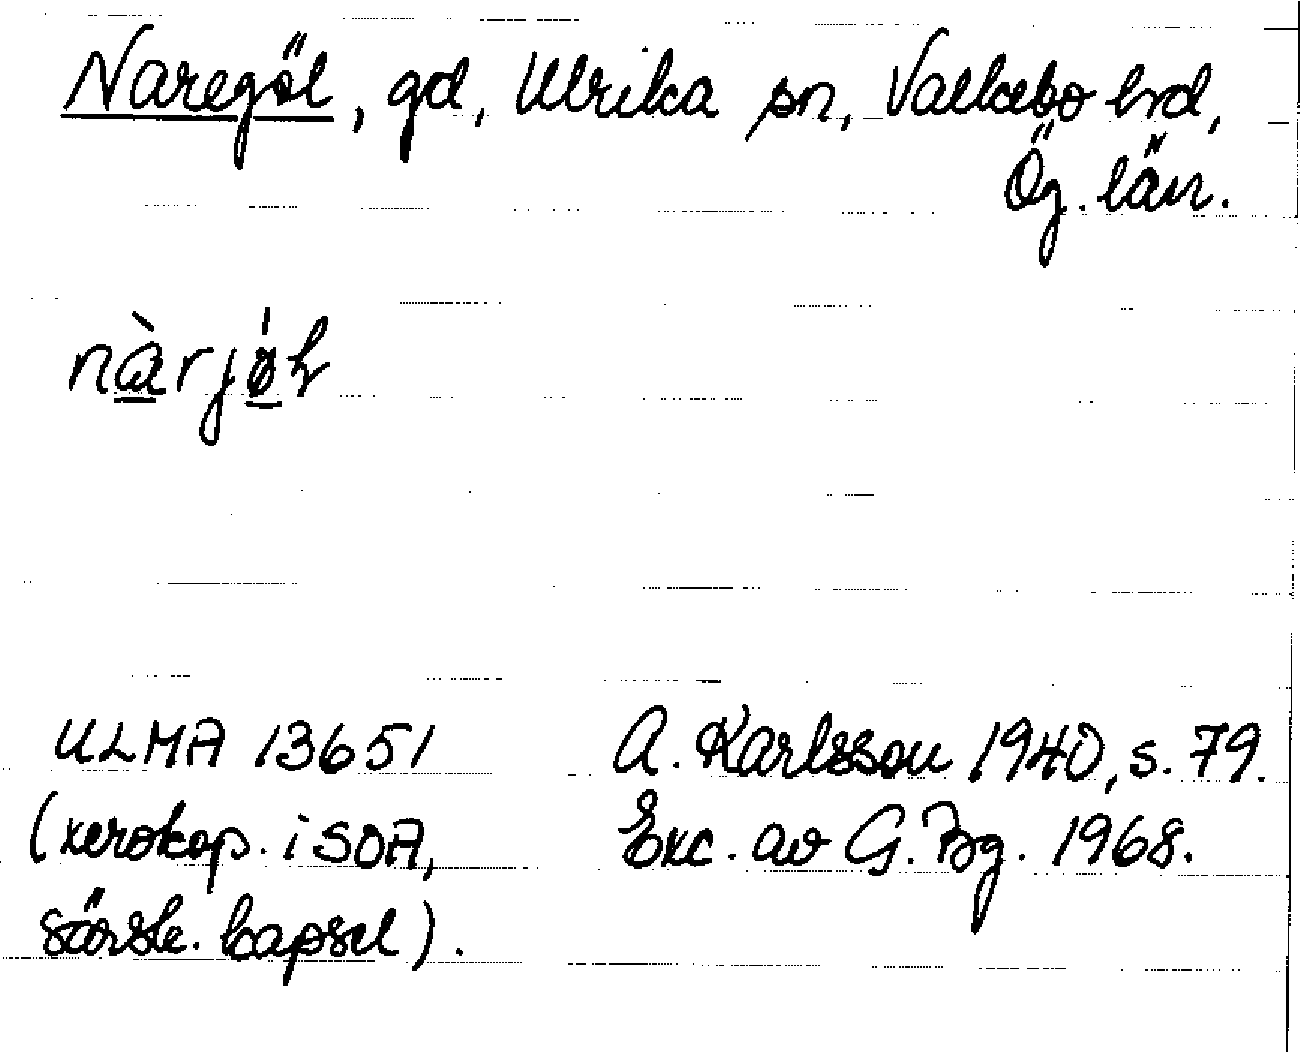 Naregöl, gd, Ulrika sn, Valkebo hrd,
Ög. län.
nàrjǿl
ULMA 13651
(xerokop. i SOA,
särsk. kapsel).
A. Karlsson 1940, s. 79.
Exc. av G. Bg. 1968.